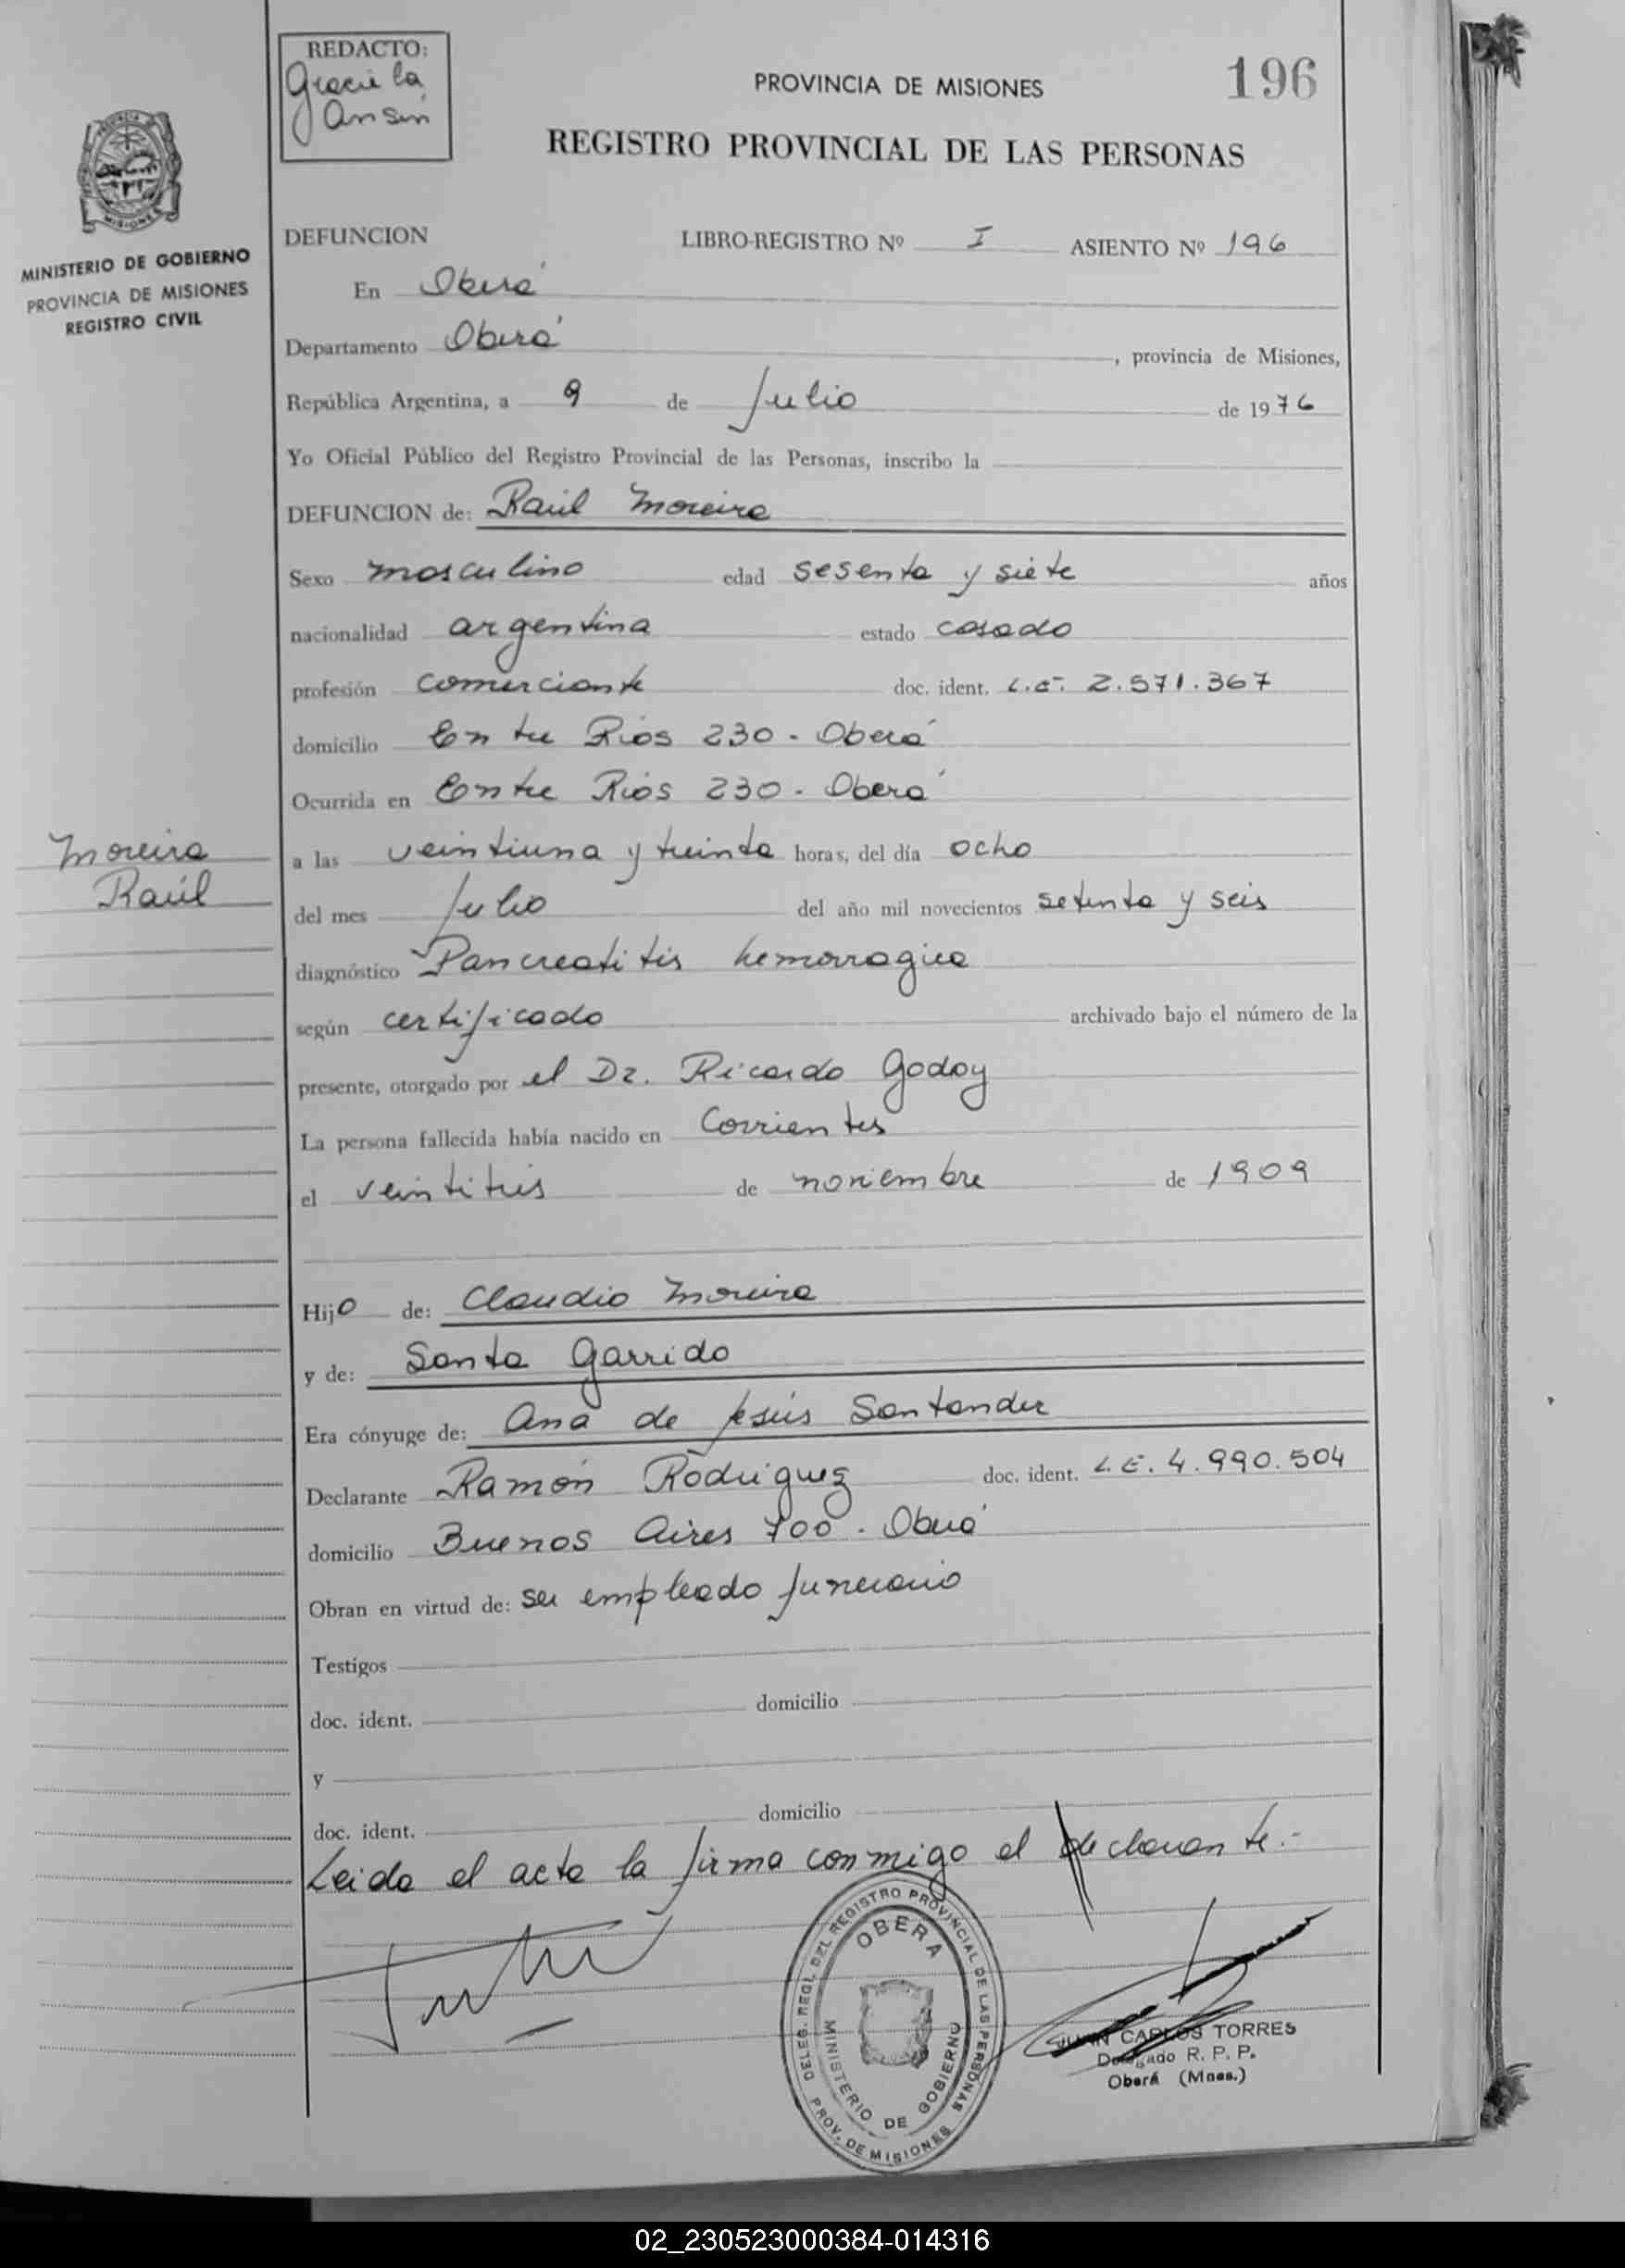 REDACTO:
Graciela
Ansin
PROVINCIA DE MISIONES
196
REGISTRO PROVINCIAL DE LAS PERSONAS
MINISTERIO DE GOBIERNO
PROVINCIA DE MISIONES
REGISTRO CIVIL
DEFUNCION LIBRO-REGISTRO Nº I ASIENTO Nº 196
En Oberá
Departamento Oberá, provincia de Misiones,
República Argentina, a 9 de Julio de 1976
Yo Oficial Público del Registro Provincial de las Personas, inscribo la
DEFUNCION de: Raúl Moreira
Sexo masculino edad sesenta y siete años
nacionalidad argentina estado casado
profesión comerciante doc. ident. L.E. 2.571.367
domicilio Entre Rios 230 - Oberá
Ocurrida en Entre Rios 230 - Oberá
Moreira
Raúl
a las veintiuna y treinta horas, del día ocho
del mes Julio del año mil novecientos setenta y seis
diagnóstico Pancreatitis hemorragica
según certificado archivado bajo el número de la
presente, otorgado por el Dr. Ricardo Godoy
La persona fallecida había nacido en Corrientes
el veintitrés de noviembre de 1909
Hijo de: Claudio Moreira
y de: Santa Garrido
Era cónyuge de: Ana de Jesús Santander
Declarante Ramón Rodriguez doc. ident. L.E. 4.990.504
domicilio Buenos Aires 700 - Oberá
Obran en virtud de: ser empleado funerario
Testigos
doc. ident. domicilio
y
doc. ident. domicilio
Leida el acta la firma conmigo el declarante.-
DELEG. REGL. DEL REGISTRO PROVINCIAL DE LAS PERSONAS
OBERA
MINISTERIO DE GOBIERNO
PROV. DE MISIONES
JUAN CARLOS TORRES
Delegado R. P. P.
Oberá (Mnes.)
02_230523000384-014316